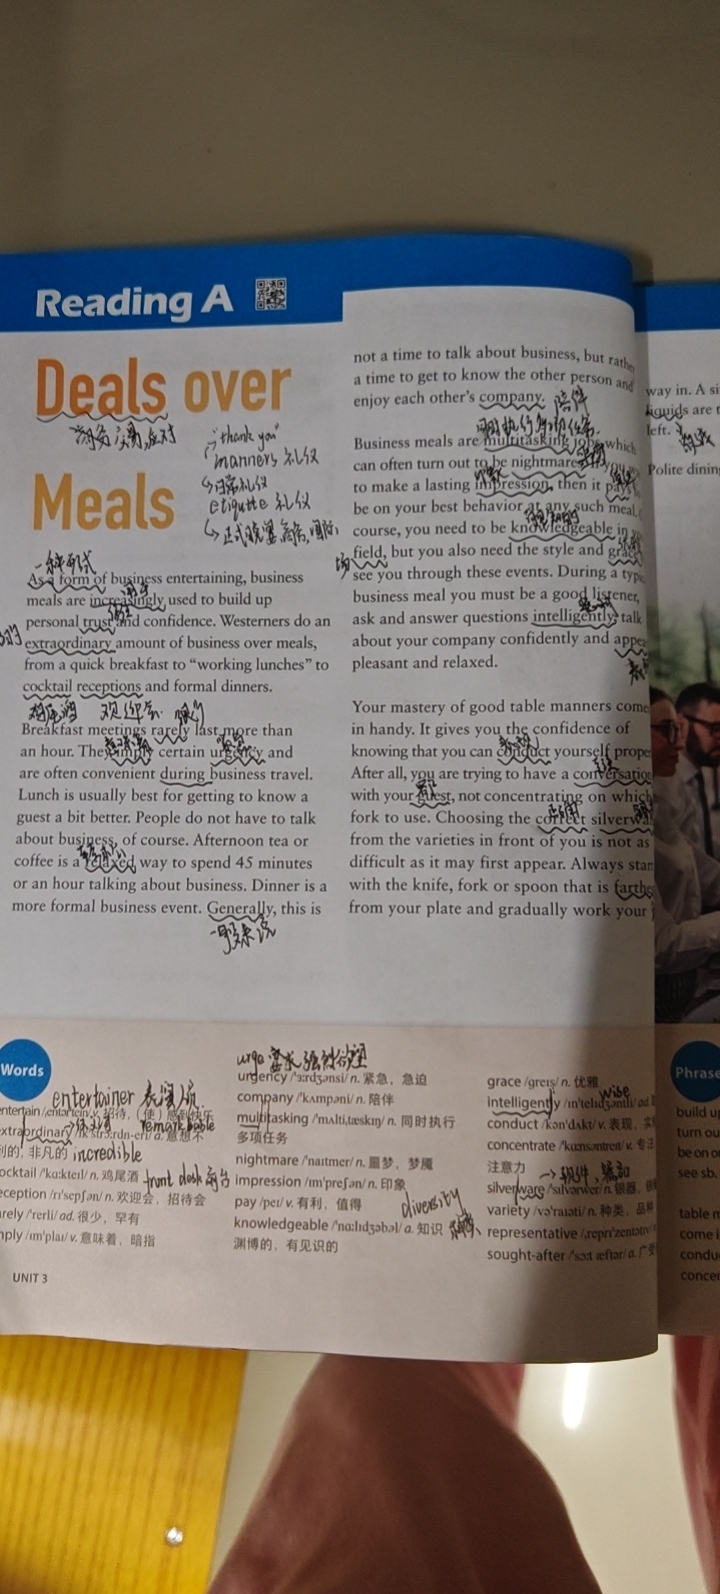 Reading A
Deals over
Meals
商务 交易,应对
"thank you"
manners 礼仪
日常礼仪
etiquette 礼仪
一种形式
As a form of business entertaining, business
meals are increasingly used to build up
personal trust and confidence. Westerners do an
extraordinary amount of business over meals,
from a quick breakfast to “working lunches” to
cocktail receptions and formal dinners.
鸡尾酒 欢迎会
Breakfast meetings rarely last more than
an hour. They certain urgency and
are often convenient during business travel.
Lunch is usually best for getting to know a
guest a bit better. People do not have to talk
about business, of course. Afternoon tea or
coffee is a relaxed way to spend 45 minutes
or an hour talking about business. Dinner is a
more formal business event. Generally, this is
一般来说
not a time to talk about business, but rather
a time to get to know the other person and
enjoy each other's company. 陪伴
Business meals are multitasking jobs which
can often turn out to be nightmares
to make a lasting impression, then it pays
be on your best behavior at any such meal.
course, you need to be knowledgeable in
field, but you also need the style and grace
see you through these events. During a
business meal you must be a good listener,
ask and answer questions intelligently, talk
about your company confidently and
pleasant and relaxed.
Your mastery of good table manners come
in handy. It gives you the confidence of
knowing that you can conduct yourself
After all, you are trying to have a
with your guest, not concentrating on which
fork to use. Choosing the correct
from the varieties in front of you is not as
difficult as it may first appear. Always
with the knife, fork or spoon that is
from your plate and gradually work your
way in. A
liquids are
left.
Polite
Words
entertainer 表演人员
招待,(使)感到快乐
remarkable
意想不
到的, 非凡的 incredible
/ˈkɑːkteɪl/ n. 鸡尾酒 front desk 前台
/rɪˈsepʃən/ n. 欢迎会,招待会
/ˈrerli/ ad. 很少,罕有
/ɪmˈplaɪ/ v. 意味着,暗指
urge 要求 强烈欲望
urgency /ˈɜːrdʒənsi/ n. 紧急,急迫
company /ˈkʌmpəni/ n. 陪伴
multitasking /ˈmʌltiˌtæskɪŋ/ n. 同时执行
多项任务
nightmare /ˈnaɪtmer/ n. 噩梦,梦魇
impression /ɪmˈpreʃən/ n. 印象
pay /peɪ/ v. 有利,值得
diversity
knowledgeable /ˈnɑːlɪdʒəbəl/ a. 知识
渊博的,有见识的
grace /ɡreɪs/ n. 优雅
wise
intelligently
conduct /kənˈdʌkt/ v. 表现,
concentrate /ˈkɑːnsəntreɪt/ v. 专注
注意力
silverware /ˈsɪlvərwer/ n. 银器,
variety /vəˈraɪəti/ n. 种类,品种
representative
sought-after /ˈsɔːt æftər/ a.
Phrase
build up
turn ou
be on
see sb.
table m
come i
condu
concen
UNIT 3